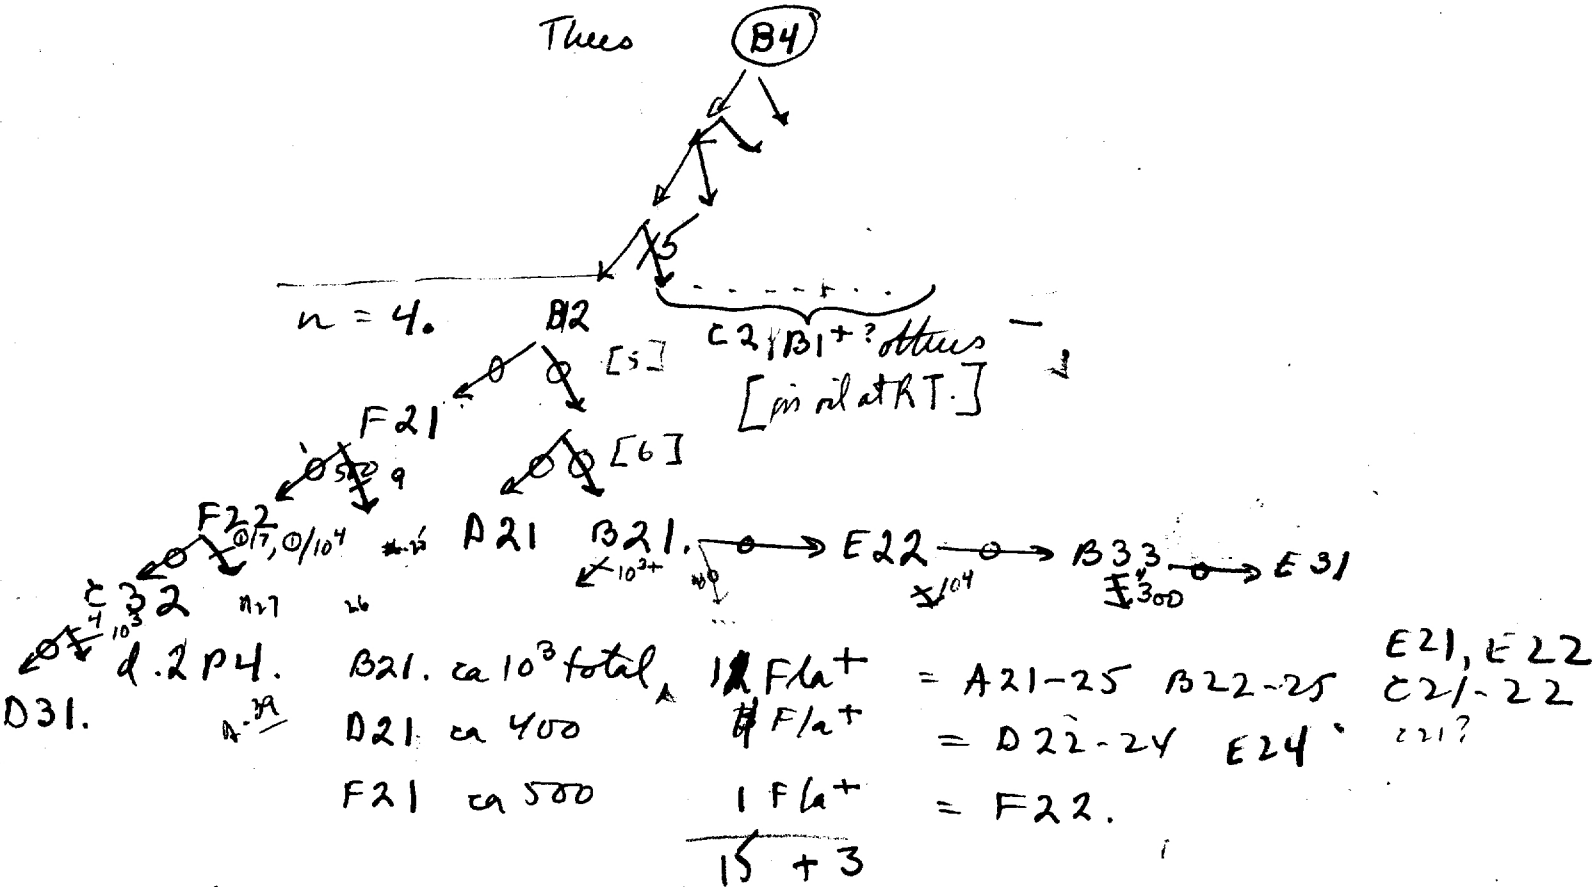 B4
5
n = 4. B12
C2, B1 + ? others
[5]
[in oil at RT.]
F21
[6]
500 9
F22 D21 B21. E22 B33 E31
①/7, ①/10⁴
10³+ 10⁴ 300
C32 A27 26
4 10³
d.2 P4. B21. ca 10³ total, Fla+ = A21-25 B22-25 E21, E22
C21-22
D31. D21 ca 400 Fla+ = D22-24 E24 C21?
F21 ca 500 1 Fla+ = F22.
15 + 3